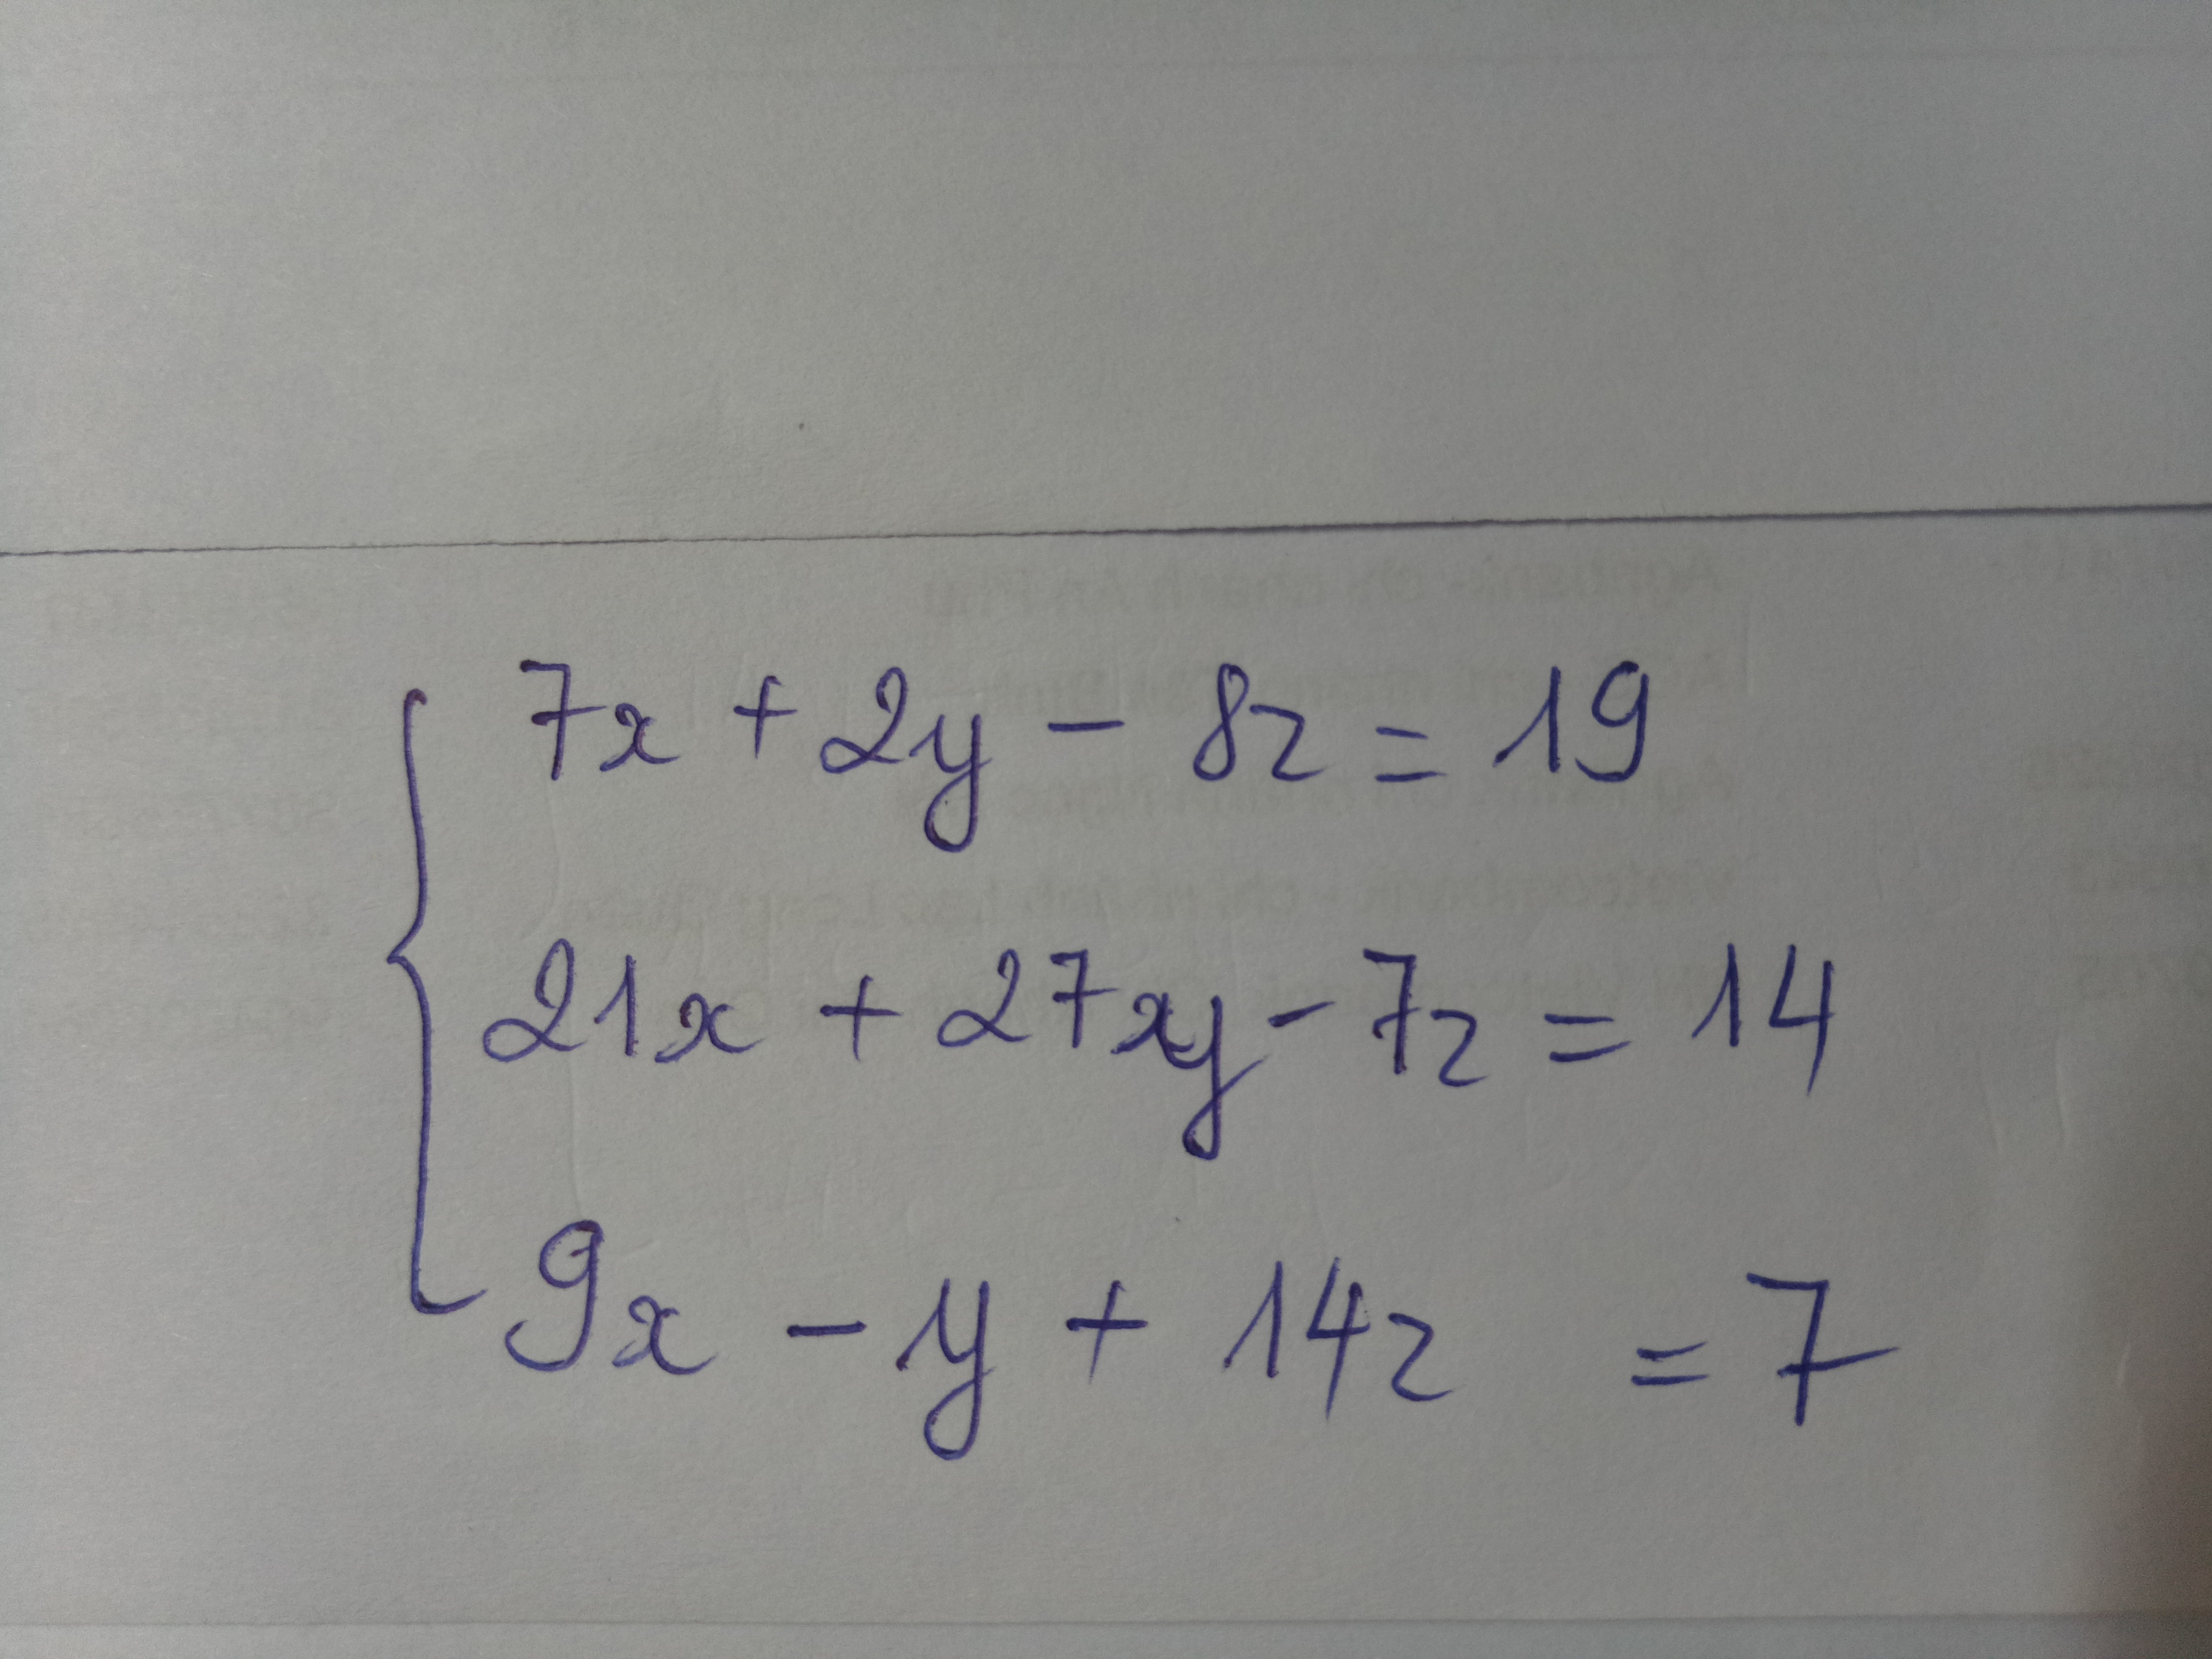 7x + 2y - 8z = 19
21x + 27xy - 7z = 14
9x - y + 14z = 7